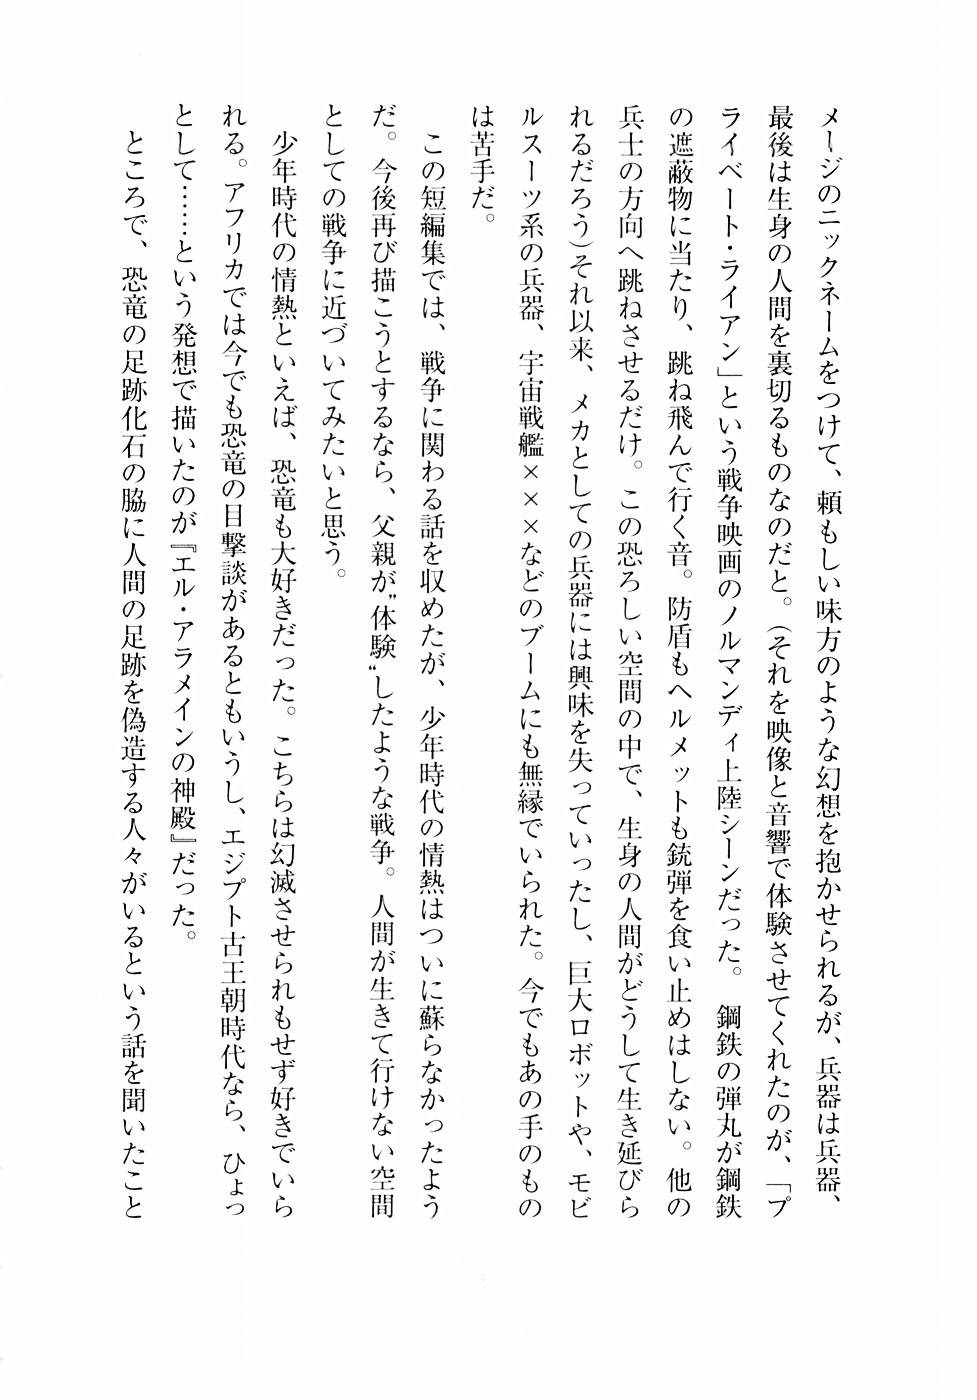 メージのニックネームをつけて、頼もしい味方のような幻想を抱かせられるが、兵器は兵器、
最後は生身の人間を裏切るものなのだと。（それを映像と音響で体験させてくれたのが、「プ
ライベート・ライアン」という戦争映画のノルマンディ上陸シーンだった。　鋼鉄の弾丸が鋼鉄
の遮蔽物に当たり、跳ね飛んで行く音。防盾もヘルメットも銃弾を食い止めはしない。他の
兵士の方向へ跳ねさせるだけ。この恐ろしい空間の中で、生身の人間がどうして生き延びら
れるだろう）それ以来、メカとしての兵器には興味を失っていったし、巨大ロボットや、モビ
ルスーツ系の兵器、宇宙戦艦×××などのブームにも無縁でいられた。今でもあの手のもの
は苦手だ。
　この短編集では、戦争に関わる話を収めたが、少年時代の情熱はついに蘇らなかったよう
だ。今後再び描こうとするなら、父親が〝体験〟したような戦争。人間が生きて行けない空間
としての戦争に近づいてみたいと思う。
　少年時代の情熱といえば、恐竜も大好きだった。こちらは幻滅させられもせず好きでいら
れる。アフリカでは今でも恐竜の目撃談があるともいうし、エジプト古王朝時代なら、ひょっ
として……という発想で描いたのが『エル・アラメインの神殿』だった。
　ところで、恐竜の足跡化石の脇に人間の足跡を偽造する人々がいるという話を聞いたこと